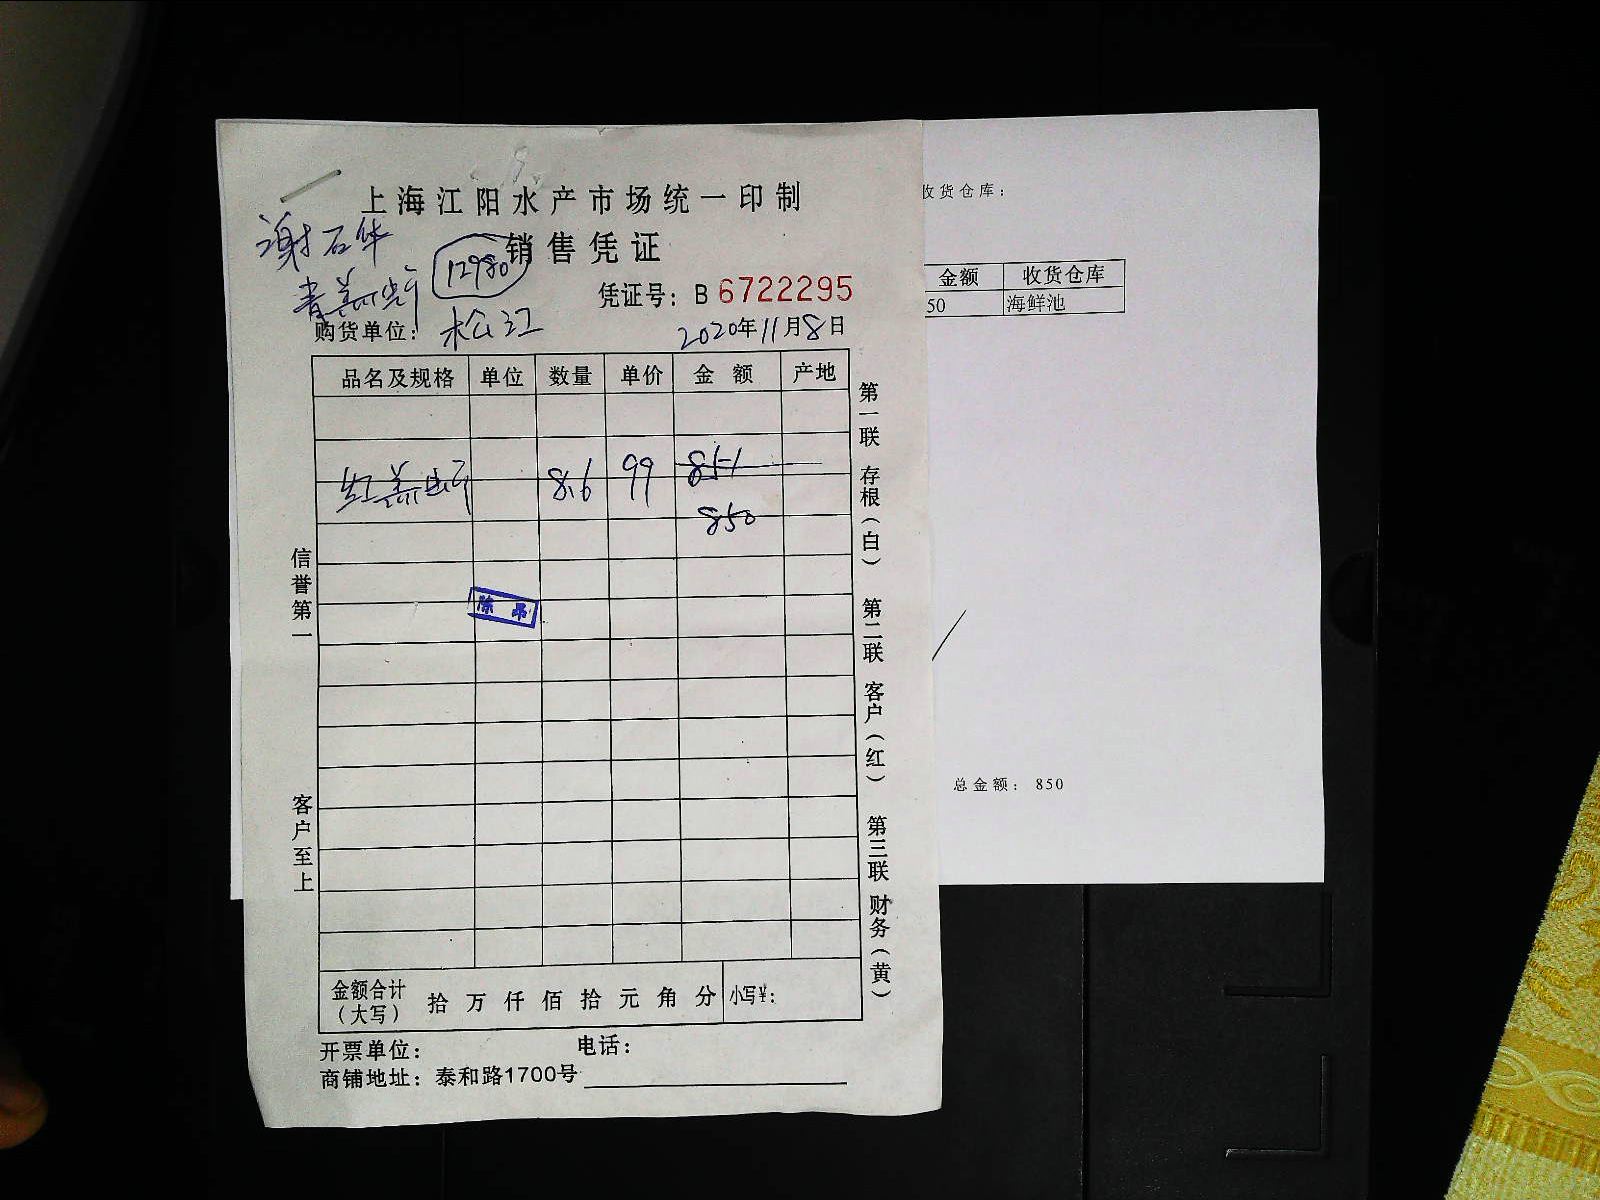 上海江阳水产市场统一印制
销售凭证
谢石华
12980
凭证号：B 6722295
购货单位：松江
2020年11月8日
品名及规格 单位 数量 单价 金额 产地
8.6 99 851
850
金额合计（大写） 拾 万 仟 佰 拾 元 角 分 小写¥：
开票单位： 电话：
商铺地址：泰和路1700号
信誉第一
客户至上
第一联 存根（白）
第二联 客户（红）
第三联 财务（黄）
收货仓库：
金额 收货仓库
50 海鲜池
总金额： 850